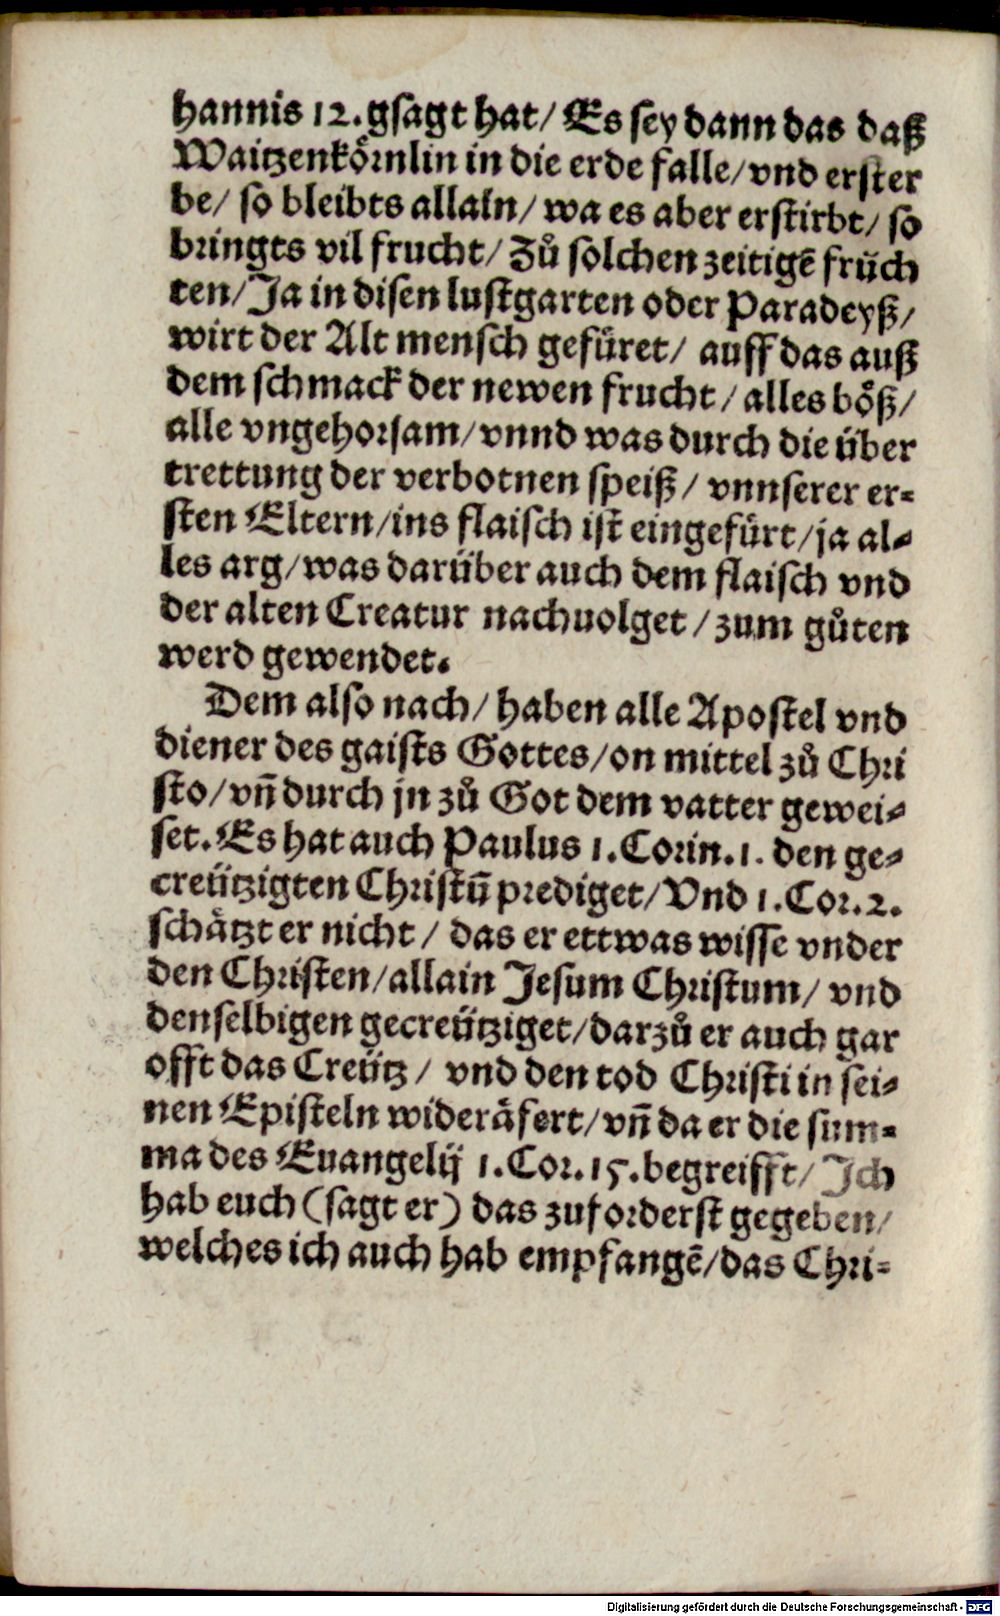 hannis 12. gsagt hat/ Es sey dann das daß
Waitzenkoͤrnlin in die erde falle/ vnd erster
be/ so bleibts allain/ wa es aber erstirbt/ so
bringts vil frucht/ Zuͦ solchen zeitigē fruͤch
ten/ Ja in disen lustgarten oder Paradeyß/
wirt der Alt mensch gefuͤret/ auff das auß
dem schmack der newen frucht/ alles boͤß/
alle vngehorsam/ vnnd was durch die über
trettung der verbotnen speiß/ vnnserer er-
sten Eltern/ ins flaisch ist eingefuͤrt/ ja al-
les arg/ was darüber auch dem flaisch vnd
der alten Creatur nachuolget/ zum guͦten
werd gewendet.
Dem also nach/ haben alle Apostel vnd
diener des gaists Gottes/ on mittel zuͦ Chri
sto/ vñ durch jn zuͦ Got dem vatter gewei-
set. Es hat auch Paulus 1. Corin. 1. den ge-
creützigten Christū prediget/ Vnd 1. Cor. 2.
schaͤtzt er nicht/ das er ettwas wisse vnder
den Christen/ allain Jesum Christum/ vnd
denselbigen gecreütziget/ darzuͦ er auch gar
offt das Creütz/ vnd den tod Christi in sei-
nen Episteln wideraͤfert/ vñ da er die sum-
ma des Euangelij 1. Cor. 15. begreifft/ Ich
hab euch (sagt er) das zuforderst gegeben/
welches ich auch hab empfangē/ das Chri-
Digitalisierung gefördert durch die Deutsche Forschungsgemeinschaft - DFG